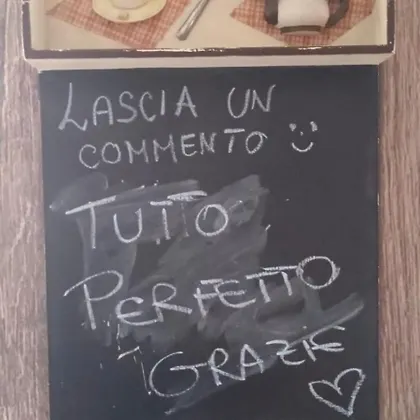 LASCIA UN
COMMENTO
TUTTO
PERFETTO
GRAZIE